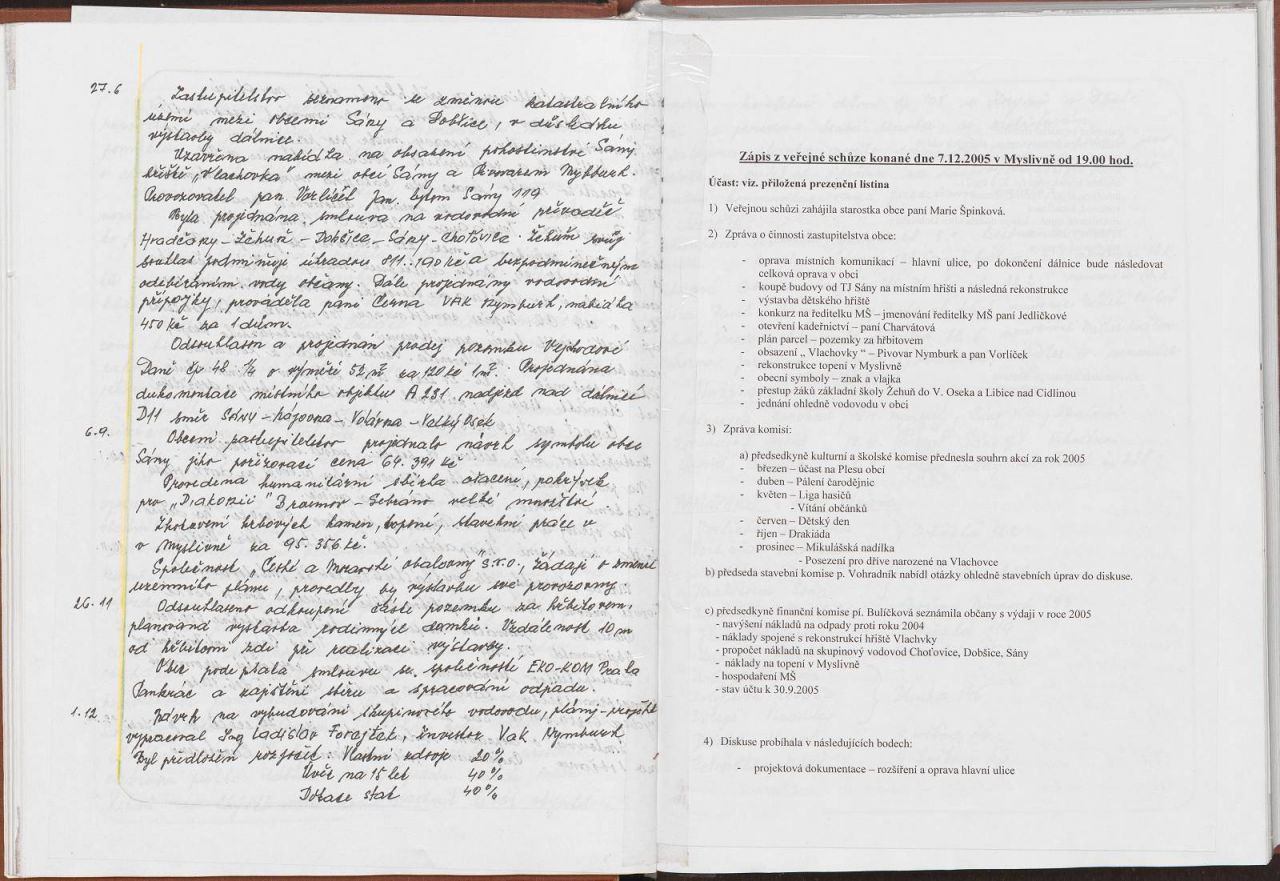 27.6 Zastupitelstvo seznámeno se změnou katastrálního
území mezi obcemi Sány a Dobšice, v důsledku
výstavby dálnice.
Uzavřena nabídka na obsazení pohostinství Sány
hřiště „Vlachovka" mezi obcí Sány a Pivovarem Nymburk.
Provozovatel pan Vorlíček Jan, bytem Sány 119
Byla projednána smlouva na vodovodní přivaděč
Hradčany-Žehuň-Dobšice-Sány-Choťovice. Žehuň svůj
souhlas podmiňuje úhradou 811.190 kč a bezpodmínečným
odebíráním vody občany. Dále projednány vodovodní
přípojky, prováděla paní Černá VAK Nymburk, nabídka
450 kč za 1 dům.
Odsouhlasen a projednán prodej pozemku Vejchodové
Daně čp 48 o výměře 52 m² za 120 kč 1 m². Projednána
dokumentace místního objektu A 231 nadjezd nad dálnicí
D11 směr SÁNY-Hájovna-Volárna-Velký Osek
6.9. Obecní zastupitelstvo projednalo návrh symbolu obce
Sány jeho pořizovací cena 64.391 kč
Provedena humanitární sbírka ošacení, pokrývek
pro „Diakonii" Broumov - Sebráno velké množství
Zhotovení krbových kamen, topení, stavební práce v
v Myslivně za 95.356 kč.
Společnost „České a Moravské obalovny" s.r.o., žádají o změnu
územního plánu, provedly by výstavbu své provozovny.
26.11 Odsouhlaseno odkoupení části pozemku za hřbitovem,
plánovaná výstavba rodinných domků. Vzdálenost 10 m
od hřbitovní zdi při realizaci výstavby.
Obec podepsala smlouvu se společností EKO-KOM Praha
Pankrác a zajištění sběru a spracování odpadu.
1.12 Návrh na vybudování skupinového vodovodu, plány-projekt
vypracoval Ing Ladislav Forejtek, investor Vak Nymburk
Byl předložen rozpočet: Vlastní zdroje 20%
Úvěr na 15 let 40%
Dotace stát 40%
Zápis z veřejné schůze konané dne 7.12.2005 v Myslivně od 19.00 hod.
Účast: viz. přiložená prezenční listina
1) Veřejnou schůzi zahájila starostka obce paní Marie Špinková.
2) Zpráva o činnosti zastupitelstva obce:
- oprava místních komunikací – hlavní ulice, po dokončení dálnice bude následovat
celková oprava v obci
- koupě budovy od TJ Sány na místním hřišti a následná rekonstrukce
- výstavba dětského hřiště
- konkurz na ředitelku MŠ – jmenování ředitelky MŠ paní Jedličkové
- otevření kadeřnictví – paní Charvátová
- plán parcel – pozemky za hřbitovem
- obsazení „ Vlachovky " – Pivovar Nymburk a pan Vorlíček
- rekonstrukce topení v Myslivně
- obecní symboly – znak a vlajka
- přestup žáků základní školy Žehuň do V. Oseka a Libice nad Cidlinou
- jednání ohledně vodovodu v obci
3) Zpráva komisí:
a) předsedkyně kulturní a školské komise přednesla souhrn akcí za rok 2005
- březen – účast na Plesu obcí
- duben – Pálení čarodějnic
- květen – Liga hasičů
- Vítání občánků
- červen – Dětský den
- říjen – Drakiáda
- prosinec – Mikulášská nadílka
- Posezení pro dříve narozené na Vlachovce
b) předseda stavební komise p. Vohradník nabídl otázky ohledně stavebních úprav do diskuse.
c) předsedkyně finanční komise pí. Bulíčková seznámila občany s výdaji v roce 2005
- navýšení nákladů na odpady proti roku 2004
- náklady spojené s rekonstrukcí hřiště Vlachvky
- propočet nákladů na skupinový vodovod Choťovice, Dobšice, Sány
- náklady na topení v Myslivně
- hospodaření MŠ
- stav účtu k 30.9.2005
4) Diskuse probíhala v následujících bodech:
- projektová dokumentace – rozšíření a oprava hlavní ulice